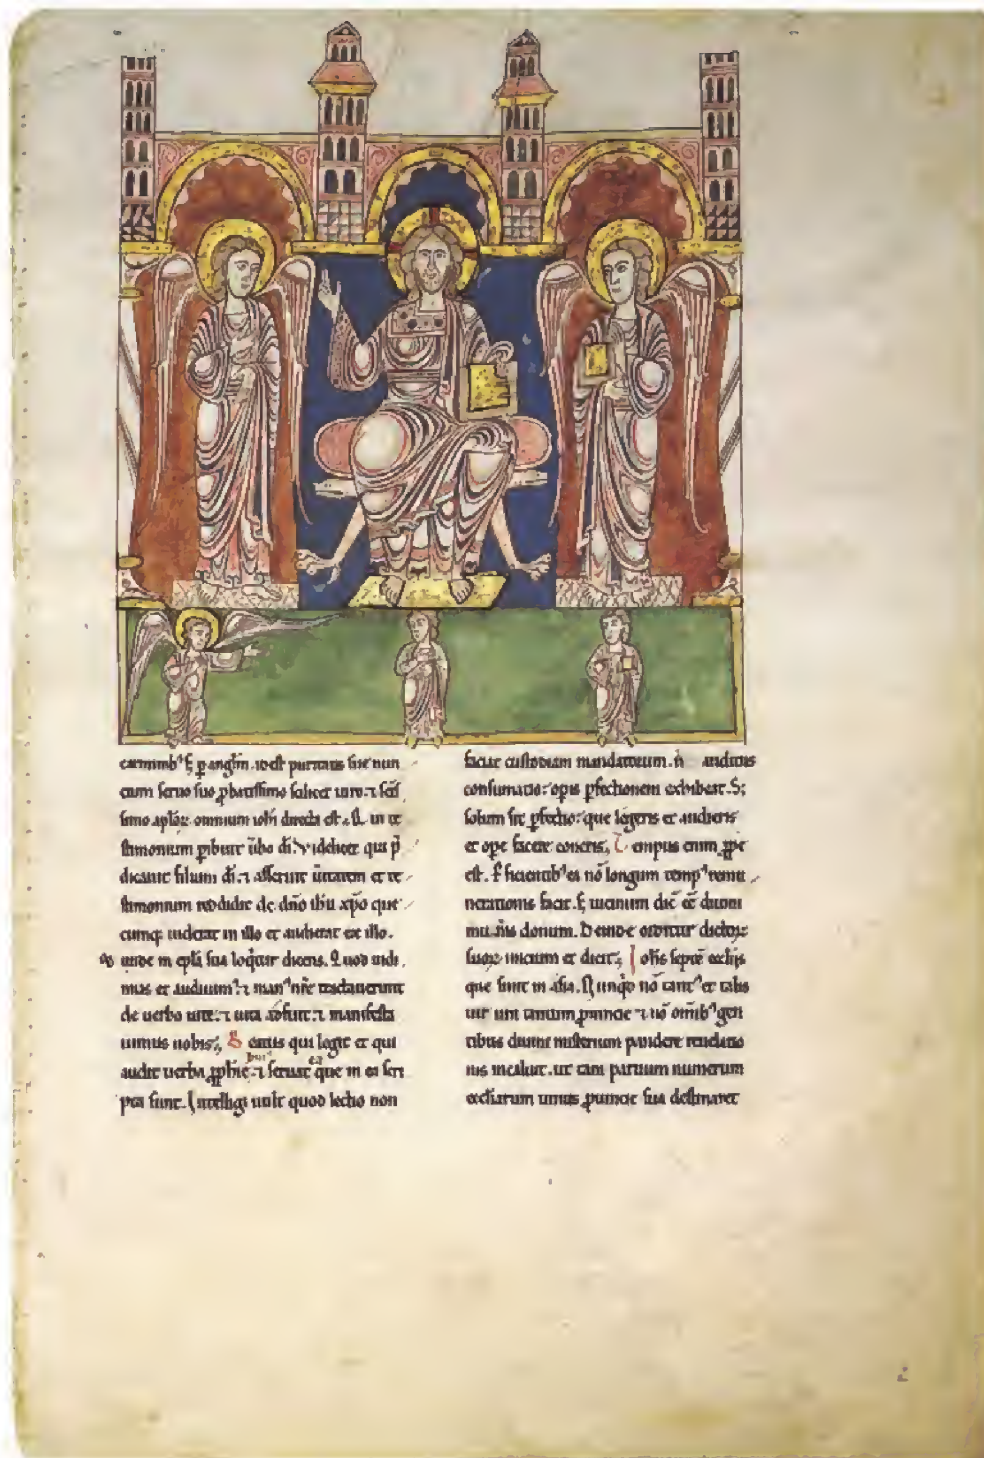 carminib⁹ s; p angl̄m. id est puritatis sue nun
cium seruo suo ꝓbatissimo scilicet uiro. ⁊ scīs
simo aplo⁊ omnium ioh̄i directa est. Qui in te
stimonium ꝑibuit ūbo dī. videlicet qui p̄
dicauit filium dī. ⁊ asseruit ūitatem et te
stimonium reddidit de dn̄o ih̄u xp̄o que
cumq; uiderat in illo et audierat ex illo.
unde in epl̄a sua loq̄tur dicens. Quod uidi
mus et audiuim⁹. ⁊ man⁹ nr̄e tractauerunt
de uerbo uite. ⁊ uita adfuit. ⁊ manifesta
uimus uobis; Beatus qui legit et qui
audit uerba ꝓph̄ie. ⁊ seruat ea que in ea scri
pta sunt. Intelligi uult quod lectio non
faciat custodiam mandatorum. n̄ auditus
consumatio: opis pfectionem exhibeat. S;
solum sit pfectio: que legeris et audieris
et ope facere coneris; Tempus enim ꝓpe
est. Pficientib⁹ ea nō longum temp⁹ remu
nerationis facit. s; uicinum dic̄ eē diuini
mun̄is donum. Deinde oritur dictor⁊
suor⁊ inicium et dicit; Ioh̄s septē ecclijs
que sunt in asia. Nunqd nō tant⁹ et talis
uir uni tantum ꝓuincie ⁊ nō om̄ib⁹ gen
tibus diuini misterium pandere reuelatio
nis meruit. ut tam paruum numerum
eccl̄iarum unius ꝓuincie sua destinaret